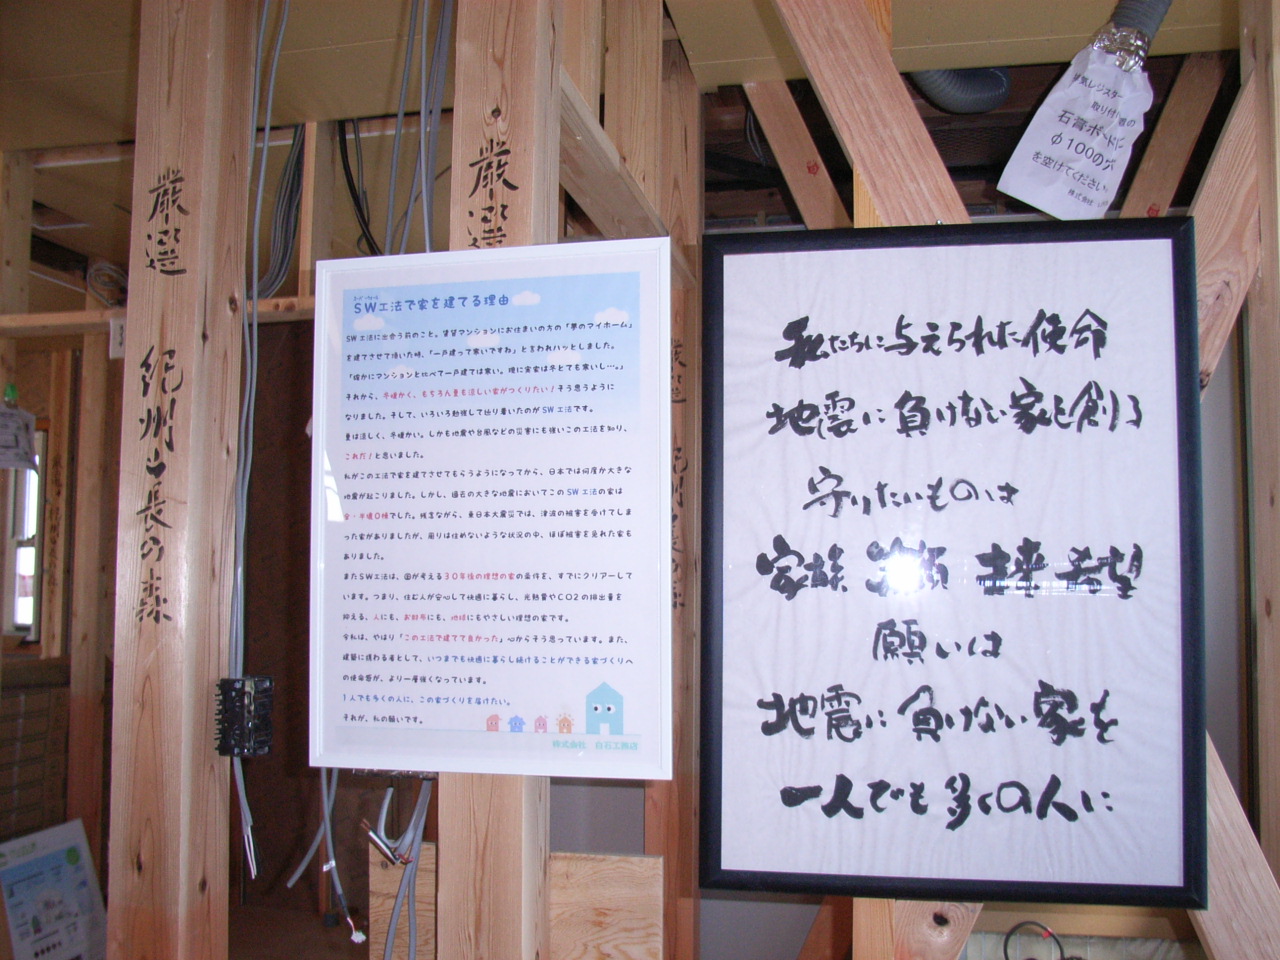 厳選 紀州山長の森
厳選
スーパーウォール
SW工法で家を建てる理由
SW工法に出会う前のこと。賃貸マンションにお住まいの方の「夢のマイホーム」
を建てさせて頂いた時、「一戸建って寒いですね」と言われハッとしました。
「確かにマンションと比べて一戸建ては寒い。現に実家は冬とても寒いし…。」
それから、冬暖かく、もちろん夏も涼しい家がつくりたい!そう思うように
なりました。そして、いろいろ勉強して辿り着いたのがSW工法です。
夏は涼しく、冬暖かい。しかも地震や台風などの災害にも強いこの工法を知り、
これだ!と思いました。
私がこの工法で家を建てさせてもらうようになってから、日本では何度か大きな
地震が起こりました。しかし、過去の大きな地震においてこのSW工法の家は
全・半壊0棟でした。残念ながら、東日本大震災では、津波の被害を受けてしま
った家がありましたが、周りは住めないような状況の中、ほぼ被害を免れた家も
ありました。
またSW工法は、国が考える30年後の理想の家の条件を、すでにクリアーして
います。つまり、住む人が安心して快適に暮らし、光熱費やCO2の排出量を
抑える、人にも、お財布にも、地球にもやさしい理想の家です。
今私は、やはり「この工法で建てて良かった」心からそう思っています。また、
建築に携わる者として、いつまでも快適に暮らし続けることができる家づくりへ
の使命感が、より一層強くなっています。
1人でも多くの人に、この家づくりを届けたい。
それが、私の願いです。
株式会社 白石工務店
私たちに与えられた使命
地震に負けない家を創る
守りたいものは
家族 笑顔 未来 希望
願いは
地震に負けない家を
一人でも多くの人に
気レジスター
取り付け
石膏ボードに
φ100の穴
を空けてください
株式会社